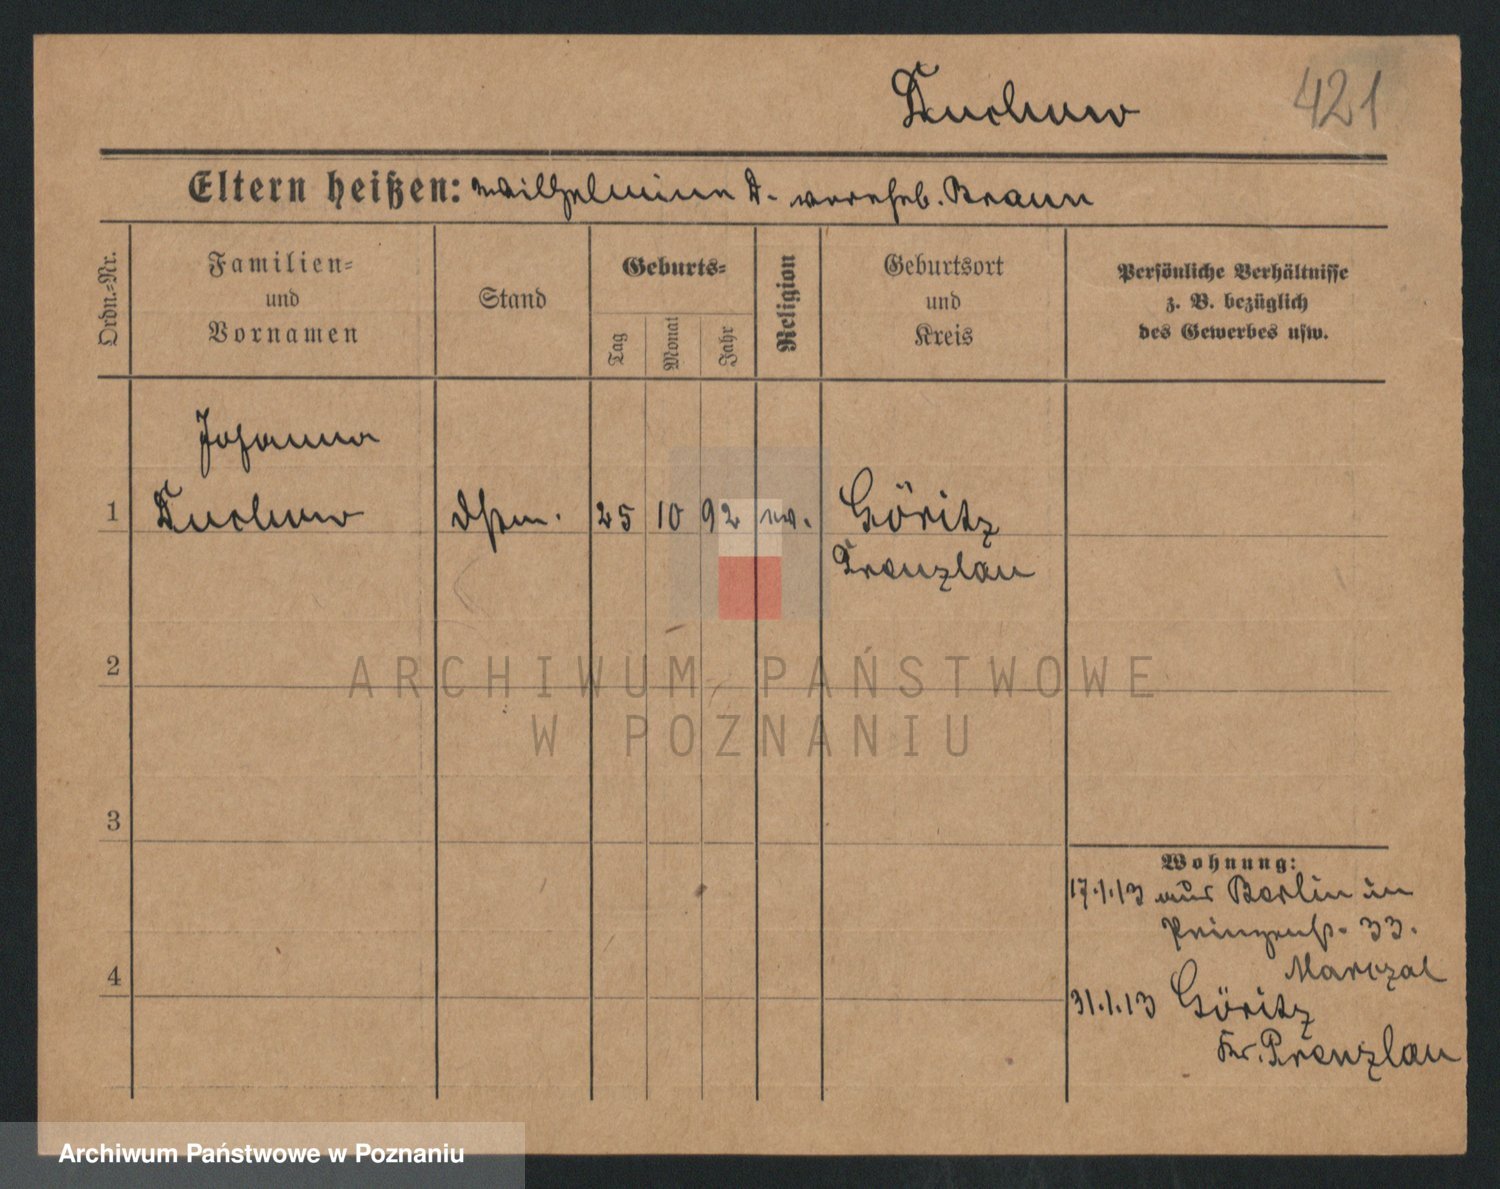 Duchow
421
Eltern heißen: Wilhelmine D. verehel. Braun
Ordn.=Nr.
Familien=
und
Vornamen
Stand
Geburts=
Tag
Monat
Jahr
Religion
Geburtsort
und
Kreis
Persönliche Verhältnisse
z. B. bezüglich
des Gewerbes usw.
Johanna
1 25 10 92 ev. Göritz
Prenzlau
2
ARCHIWUM PAŃSTWOWE
W POZNANIU
3
Wohnung:
17.1.13 aus Berlin in
Prinzenstr. 33.
Marczal
4
31.1.13 Göritz
Kr. Prenzlau
Archiwum Państwowe w Poznaniu